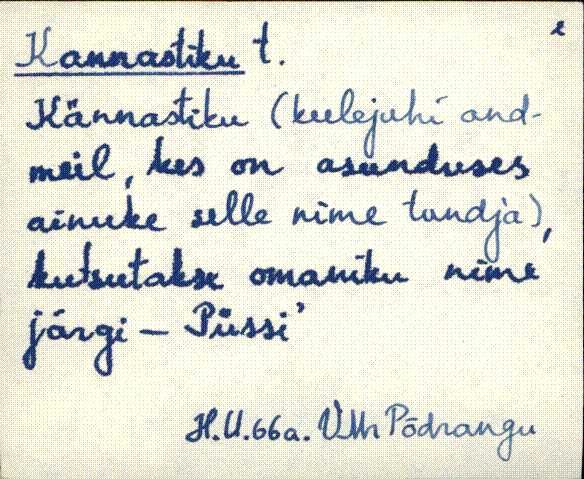 Kannastiku t.
Kännastiku (keelejuhi and-
meil, kes on asunduses
ainuke selle nime tundja),
kutsutakse omaniku nime
järgi – Püssi'
H.U.66a. VMr Põdrangu